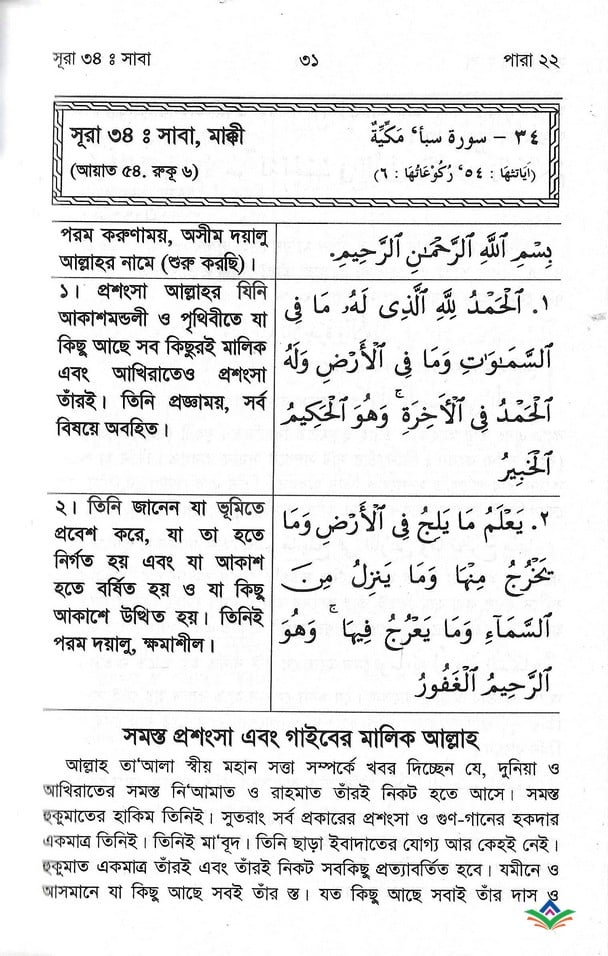 সূরা ৩৪ ঃ সাবা ৩১ পারা ২২
সূরা ৩৪ ঃ সাবা, মাক্কী
(আয়াত ৫৪. রুকূ ৬)
٣٤ – سورة سبأ، مَكِّيَّةٌ
(اٰيَاتُهَا : ٥٤، رُكُوْعَاتُهَا : ٦)
পরম করুণাময়, অসীম দয়ালু
আল্লাহর নামে (শুরু করছি)।
بِسْمِ ٱللَّهِ ٱلرَّحْمَـٰنِ ٱلرَّحِيمِ.
১। প্রশংসা আল্লাহর যিনি
আকাশমন্ডলী ও পৃথিবীতে যা
কিছু আছে সব কিছুরই মালিক
এবং আখিরাতেও প্রশংসা
তাঁরই। তিনি প্রজ্ঞাময়, সর্ব
বিষয়ে অবহিত।
١. ٱلْحَمْدُ لِلَّهِ ٱلَّذِى لَهُۥ مَا فِى
ٱلسَّمَـٰوَٰتِ وَمَا فِى ٱلْأَرْضِ وَلَهُ
ٱلْحَمْدُ فِى ٱلْأَخِرَةِ ۚ وَهُوَ ٱلْحَكِيمُ
ٱلْخَبِيرُ
২। তিনি জানেন যা ভূমিতে
প্রবেশ করে, যা তা হতে
নির্গত হয় এবং যা আকাশ
হতে বর্ষিত হয় ও যা কিছু
আকাশে উত্থিত হয়। তিনিই
পরম দয়ালু, ক্ষমাশীল।
٢. يَعْلَمُ مَا يَلِجُ فِى ٱلْأَرْضِ وَمَا
يَخْرُجُ مِنْهَا وَمَا يَنزِلُ مِنَ
ٱلسَّمَآءِ وَمَا يَعْرُجُ فِيهَا ۚ وَهُوَ
ٱلرَّحِيمُ ٱلْغَفُورُ
সমস্ত প্রশংসা এবং গাইবের মালিক আল্লাহ
আল্লাহ তা‘আলা স্বীয় মহান সত্তা সম্পর্কে খবর দিচ্ছেন যে, দুনিয়া ও
আখিরাতের সমস্ত নি‘আমাত ও রাহমাত তাঁরই নিকট হতে আসে। সমস্ত
হুকুমাতের হাকিম তিনিই। সুতরাং সর্ব প্রকারের প্রশংসা ও গুণ-গানের হকদার
একমাত্র তিনিই। তিনিই মা‘বূদ। তিনি ছাড়া ইবাদাতের যোগ্য আর কেহই নেই।
হুকুমাত একমাত্র তাঁরই এবং তাঁরই নিকট সবকিছু প্রত্যাবর্তিত হবে। যমীনে ও
আসমানে যা কিছু আছে সবই তাঁর স্ত। যত কিছু আছে সবাই তাঁর দাস ও